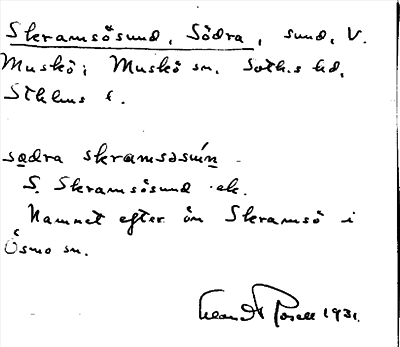 Skramsösund, Södra, sund, V.
Muskö i Muskö sn. Soth.s hd,
Sthlms l.
sɑdra skramsəsuńn
S. Skramsösund ek.
Namnet efter ön Skramsö i
Ösmo sn.
1931.